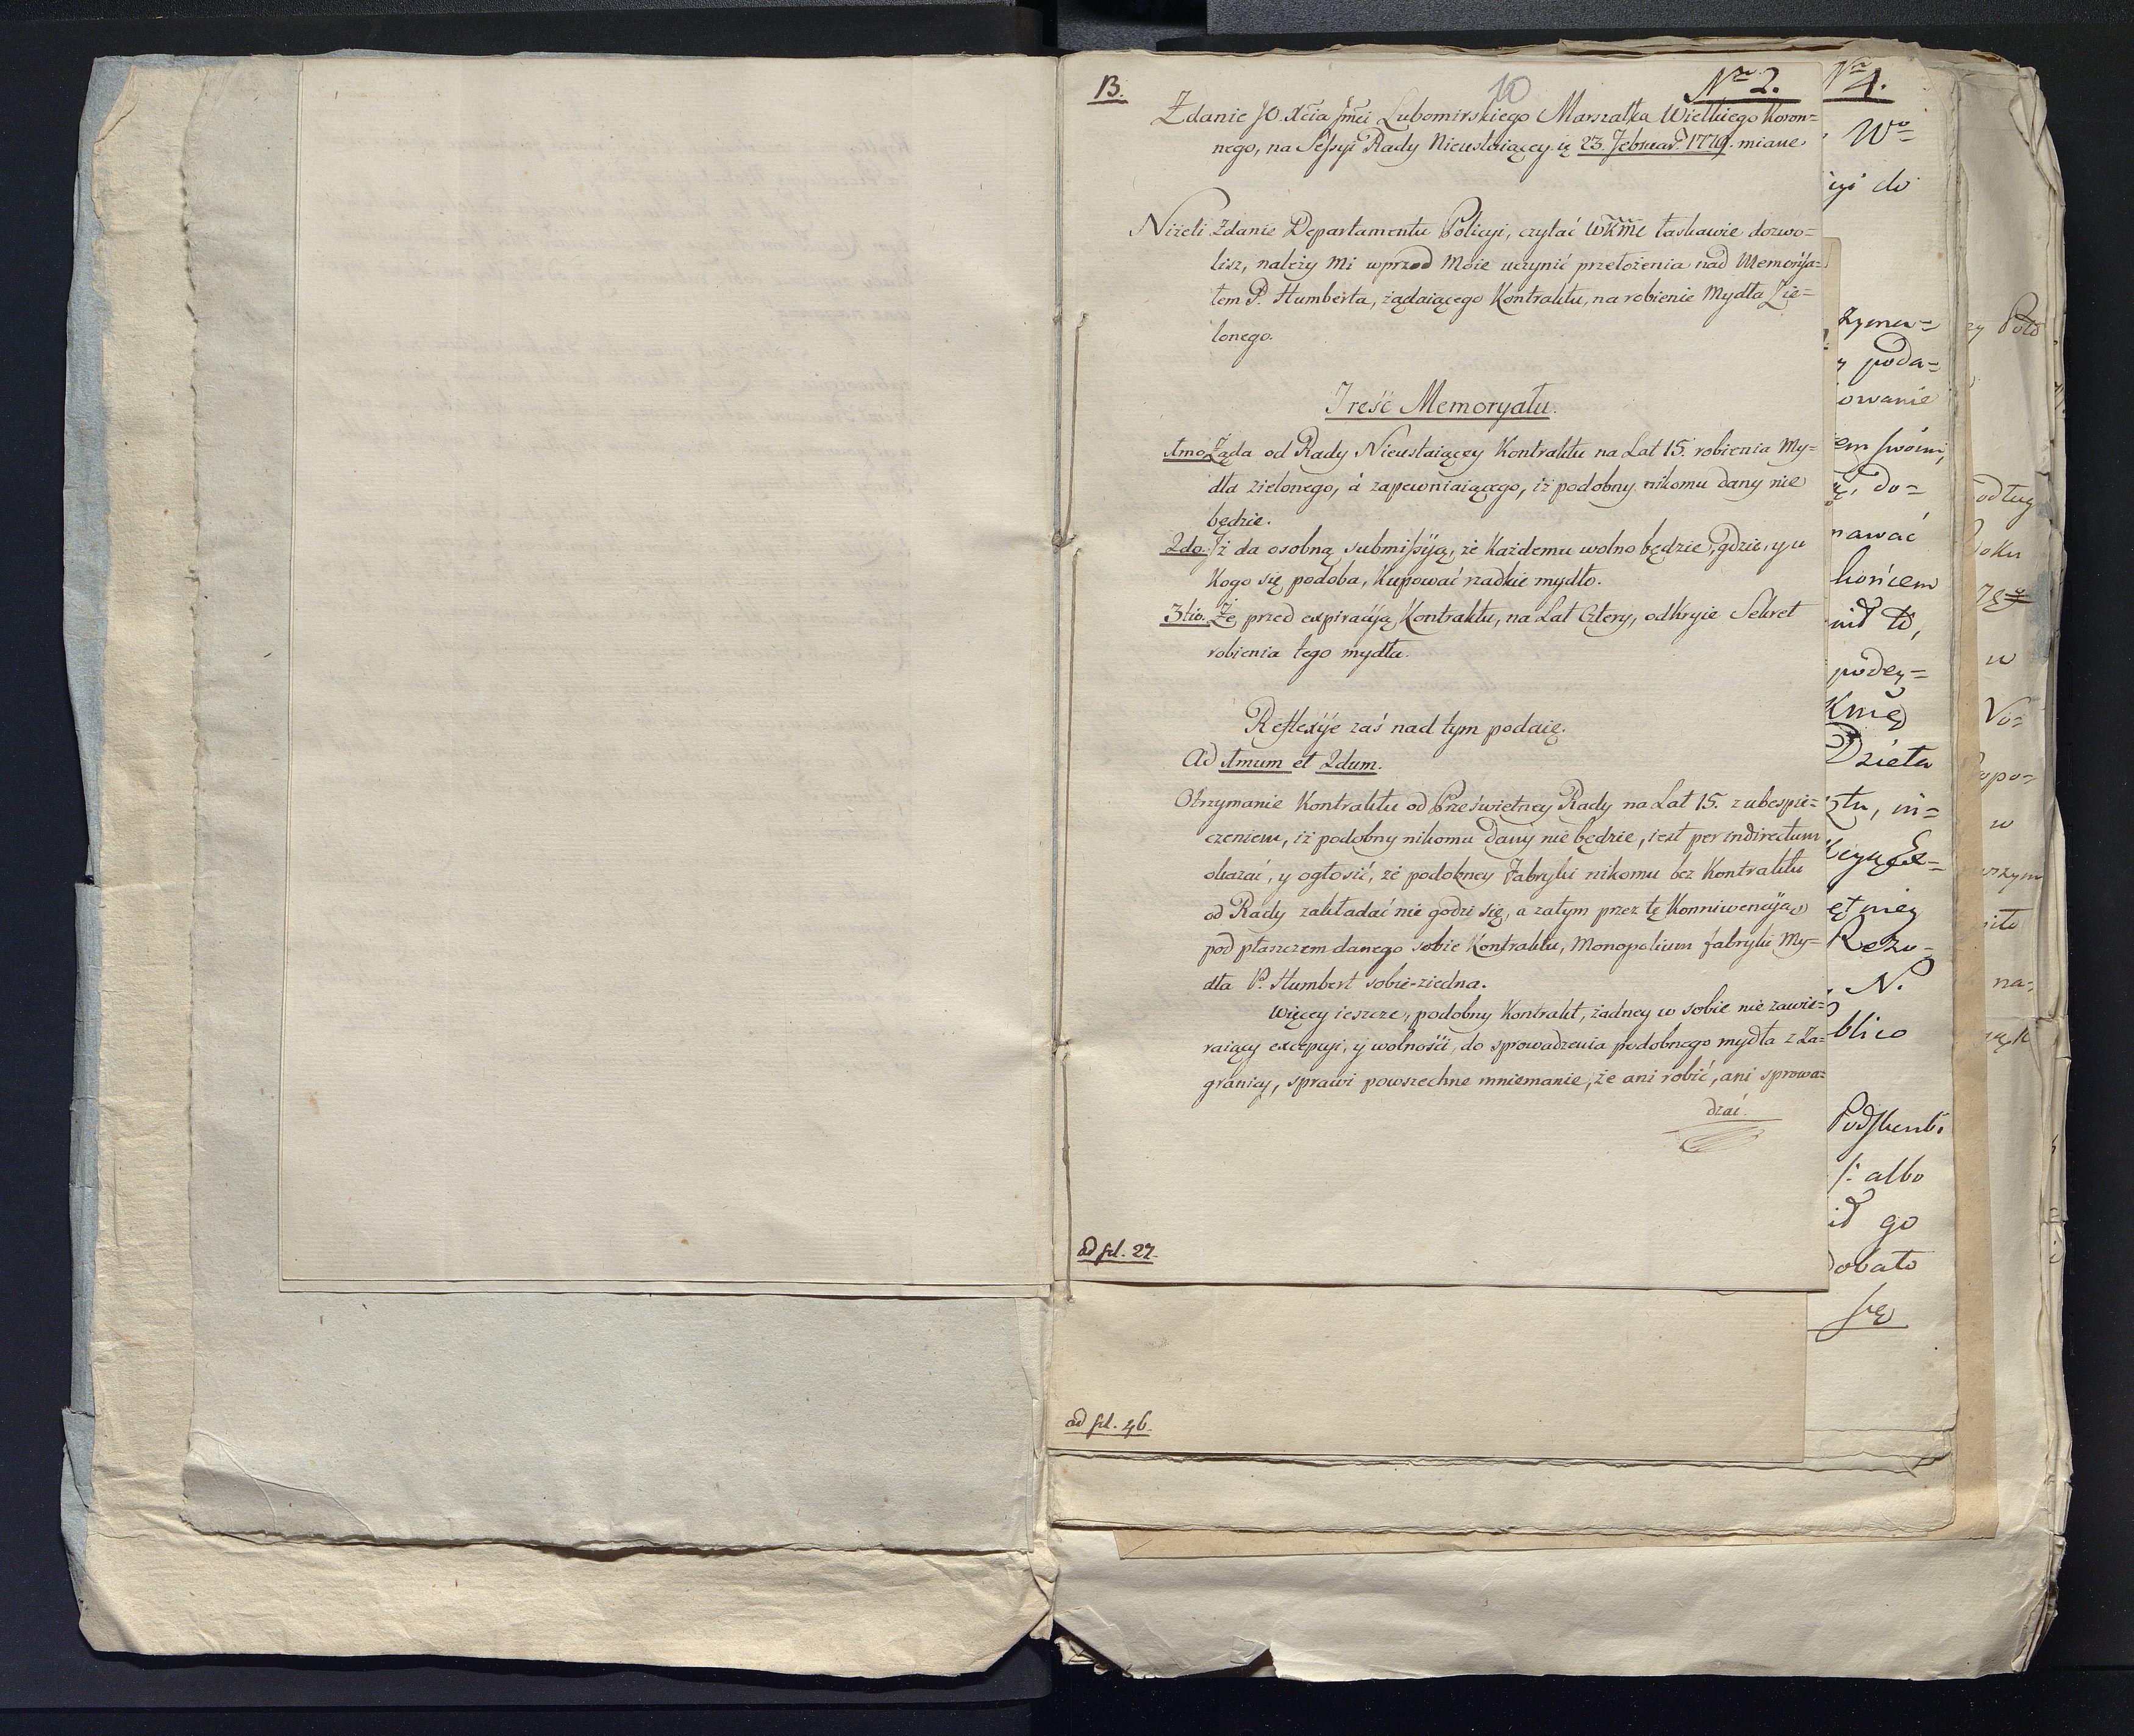 B.
10
Nro 2.
Zdanie JO. Xcia Jmci Lubomirskiego Marszałka Wielkiego Koron=
nego, na Sessyi Rady Nieustaiącey in 23. Februar. 1779. miane.
Niżeli Zdanie Departamentu Policyi, czytać WKMć łaskawie dozwo=
lisz, należy mi wprzod moie uczynić przełożenia nad Memoryja=
łem P. Humberta, żądaiącego Kontraktu, na robienie Mydła Zie=
lonego.
Treść Memoryału.
1mo. Żąda od Rady Nieustaiącey Kontraktu na Lat 15. robienia My=
dła zielonego, á zapewniaiącego, iż podobny nikomu dany nie
będzie.
2do. Iż da osobną submissyją, że każdemu wolno będzie, gdzie, y u
kogo się podoba, kupować rzadkie mydło.
3tio. Że przed expiracyją Kontraktu, na Lat Cztery, odkryie Sekret
robienia tego mydła.
Reflexyje zaś nad tym podaię.
Ad 1mum et 2dum.
Otrzymanie Kontraktu od Prześwietney Rady na Lat 15. z ubespie=
czeniem, iż podobny nikomu dany nie będzie, iest per indirectum
okazać, y ogłosić, że podobney Fabryki nikomu bez Kontraktu
od Rady zakładać nie godzi się, a zatym przez tę Konniwencyją
pod płaszczem danego sobie Kontraktu, Monopolium fabryki My=
dła P. Humbert sobie ziedna.
Więcey ieszcze, podobny Kontrakt, żadney w sobie nie zawie=
raiący excepcyi, y wolności, do sprowadzenia podobnego mydła z Za=
granicy, sprawi powszechne mniemanie, że ani robić, ani sprowa=
dzać.
ad fol. 27.
ad fol. 46.
Nro 4.
Wo
cyi do
zyma=
y poda=
owanie
em swoim,
do=
nawać
końcem
nid to,
podey=
Kmę
Dzieła
ztu, in=
ętney
Rezo=
N.
blico
Podskarbi
albo
go
dobało
się